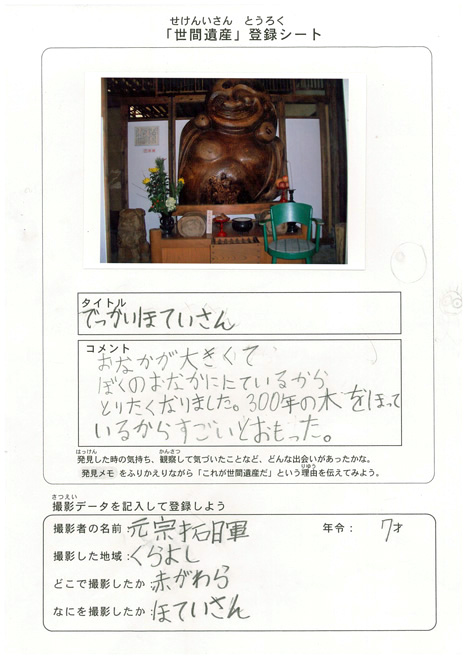 せけんいさん とうろく
「世間遺産」登録シート
タイトル
でっかいほていさん
コメント
おなかが大きくて
ぼくのおなかににているから
とりたくなりました。300年の木をほって
いるからすごいとおもった。
はっけん かんさつ
発見した時の気持ち、観察して気づいたことなど、どんな出会いがあったかな。
りゆう
発見メモ をふりかえりながら「これが世間遺産だ」という理由を伝えてみよう。
さつえい
撮影データを記入して登録しよう
撮影者の名前: 元宗拓 年令: 7才
撮影した地域: くらよし
どこで撮影したか: 赤がわら
なにを撮影したか: ほていさん